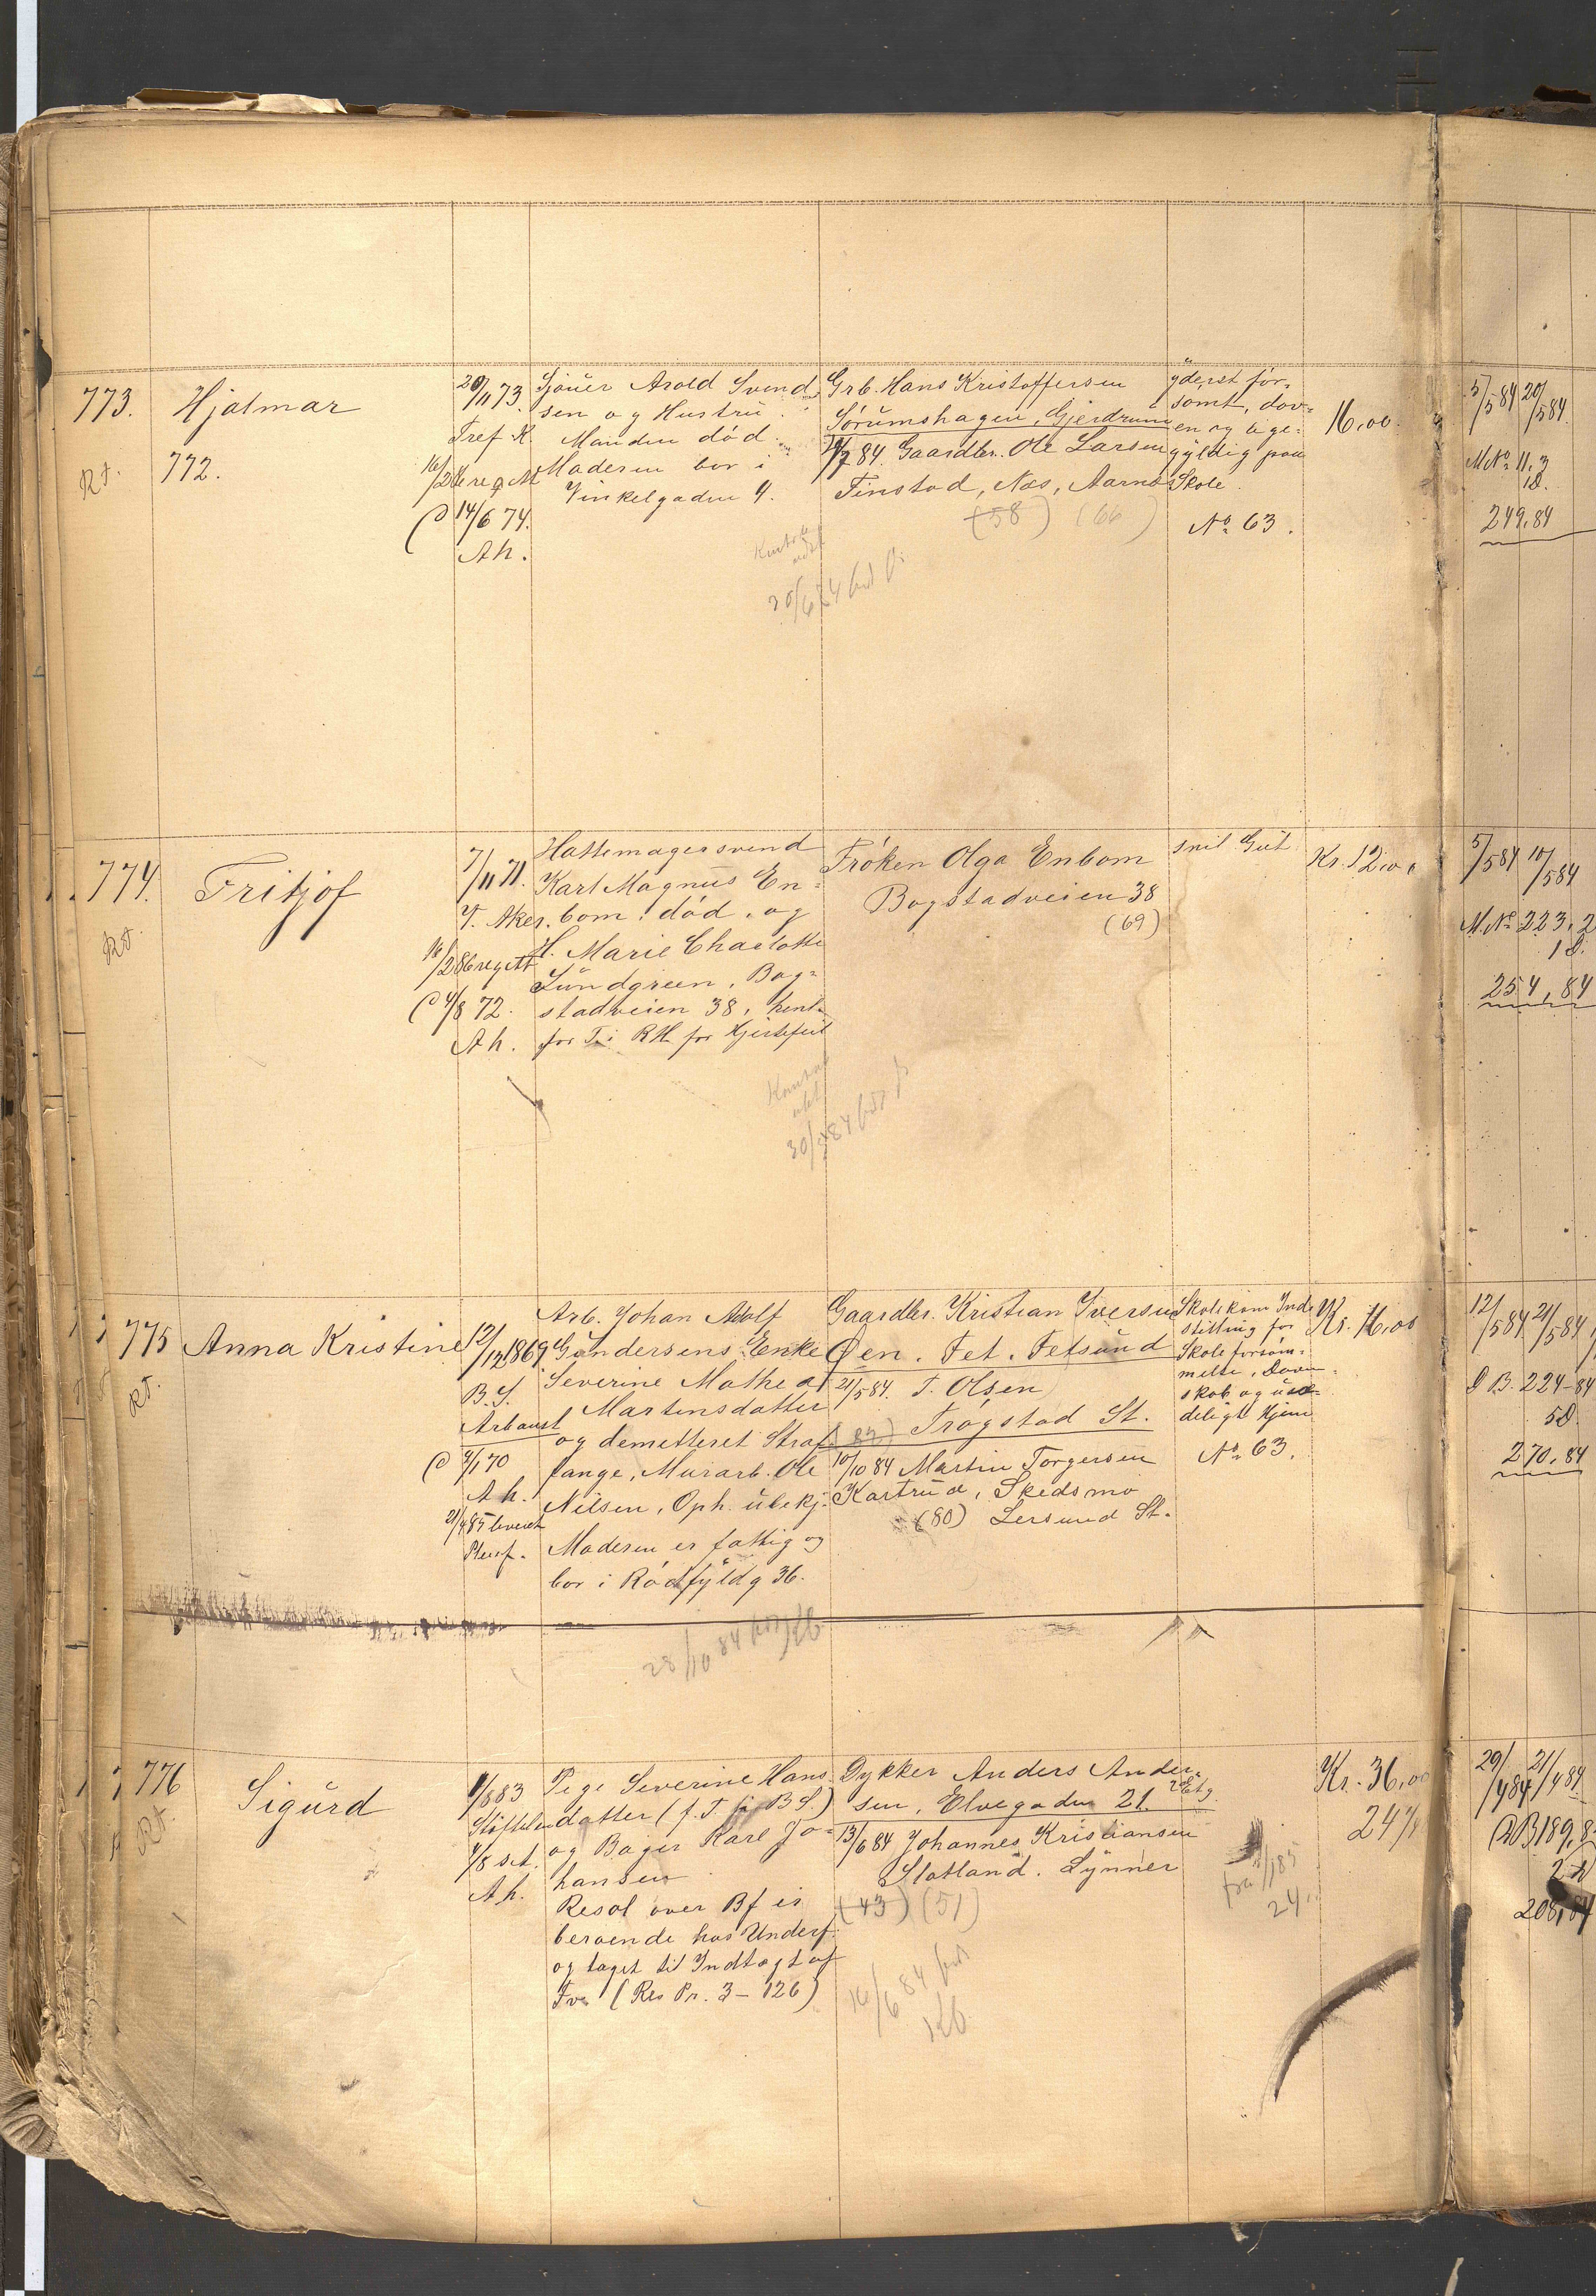 773.
Hjalmar
772.
Rt.
20/11 73.
Tref K.
16/2 86 reg M
14/6 74.
Ah.
Sjouer Arold Svend
sen og Hustru
Manden død
Moderen bor i
Vinkelgaden 4.
Grb. Hans Kristoffersen
Sørumshagen, Gjerdrum
/7 84. Gaardbr. Ole Larsen
Finstad, Næs, Aarnæs
(58) (66)
yderst for-
somt, dov-
en og lige-
gyldig paa
Skole.
No 63.
16,00.
5/5 84 20/5 84
M No 11,3
1D.
249,84
774.
Fritjof
Rt.
7/11 71.
V. Aker.
16/2 86 reg M
4/8 72.
Ah.
Hattemagersvend
Karl Magnus En-
bom, død, og
H. Marie Charlotte
Lundgreen, Bog-
stadveien 38, hent.
for T. i RH for Hjertefeil
Frøken Olga Enbom
Bogstadveien 38
(69)
snil Gut
Kr. 12,00
5/5 84 10/5 84
M. No 223,2
1D.
254,84
775
Anna Kristine
Rt.
12/12 1869
B.S.
Arbanst
4/1 70
Ah.
21/4 85 leveret
Pleief.
Arb. Johan Adolf
Gundersens Enke
Severine Mathea
Martinsdatter
og demitteret Straf
fange, Murarb. Ole
Nilsen, Oph. ubekj.
Moderen er fattig og
bor i Rødfyldg 36.
28/10 84
Gaardbr. Kristian Iversen
Øen. Fet. Fetsund
21/5 84. T. Olsen
Trøgstad St.
10/10 84 Martin Torgersen
Kastrud, Skedsmo
(80) Lersund St.
Skolekom Ind-
stilling for
Skoleforsøm-
melse, Doven-
skab og usæ-
deligt Hjem
No 63.
Kr. 16,00
12/5 84 21/5 84
B. 224-84
5D.
270,84
776
Sigurd
Rt.
/8 83
4/8 s.a.
Ah.
Pige Severine Hans-
datter (f. T. fr BS.)
og Bager Karl Jo-
hansen
Resol over Bf er
beroende hos Underf.
og taget til Indtægt af
Fv (Res Pr. 3 - 126)
Dykker Anders Ander-
sen, Elvegaden 21. 2 Etg.
13/6 84 Johannes Kristiansen
Slatland. Lynner
(43) (51)
16/6 84
fra 1/1 85
24
Kr. 36,00
24
29/4 84 21/4 84
B 189,8
208,84